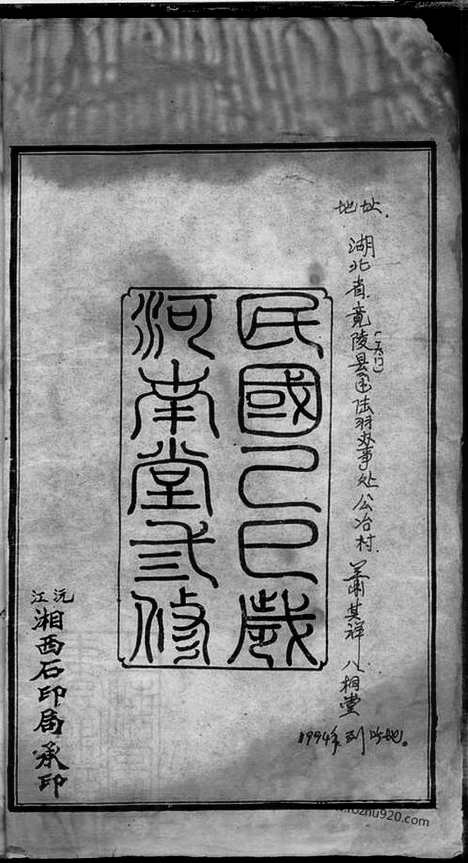 地址
湖北省竟陵县(天门)陆羽办事处公冶村 萧其祥 八桐堂
1994年到此地。
民國己巳歲
河南堂弍修
沅江
湘西石印局承印